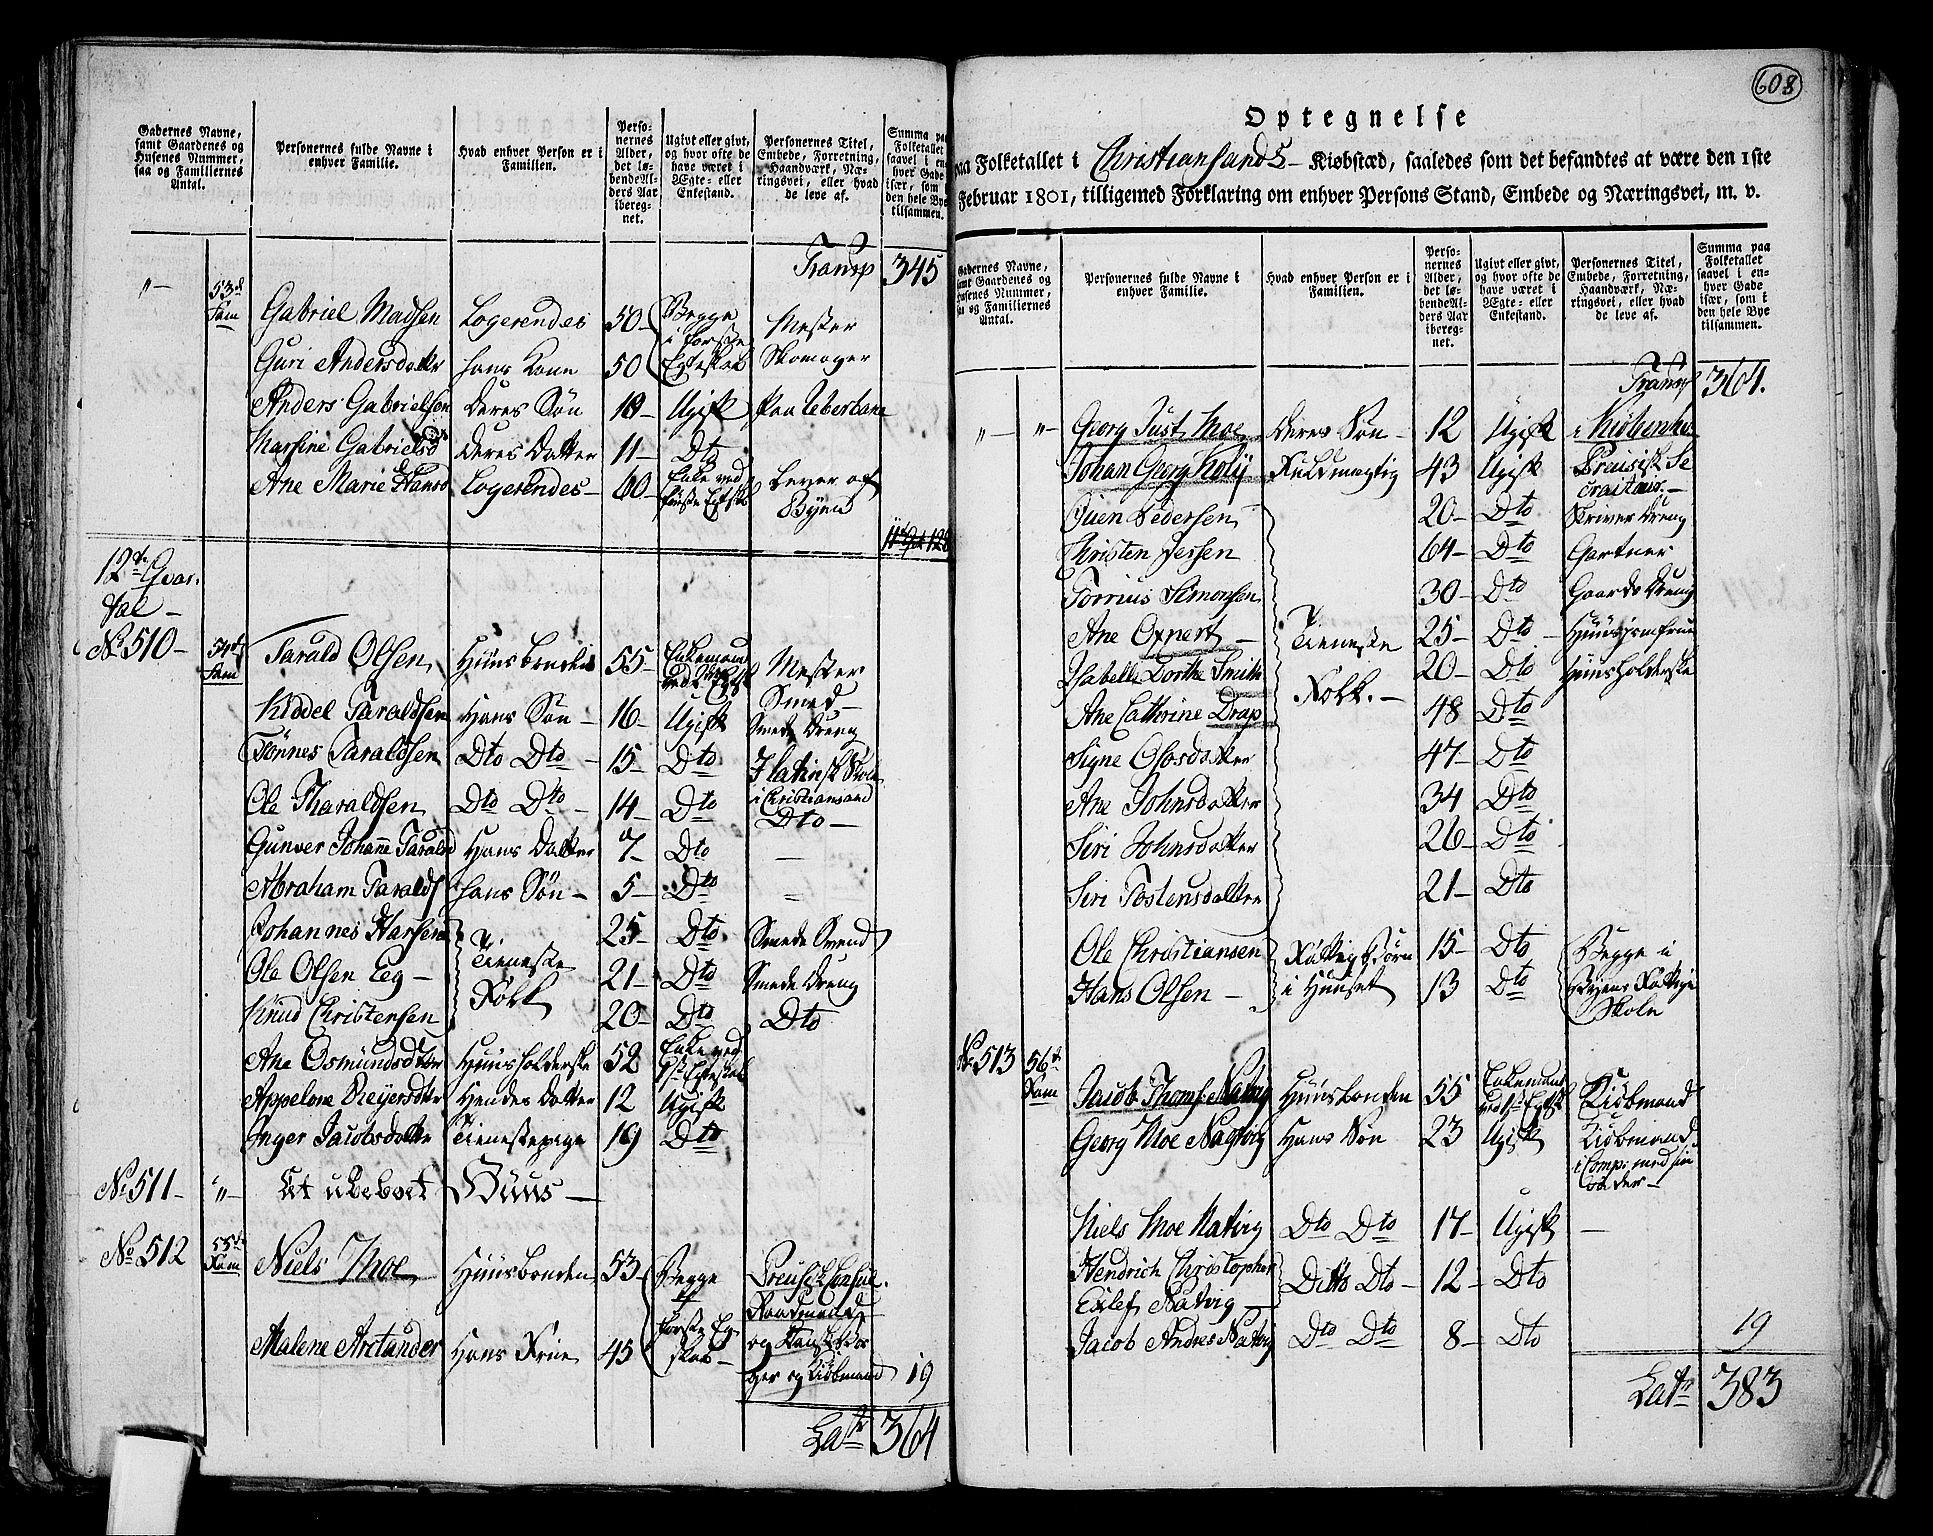 Gadernes Navne, samt Gaardenes og Husenes Nummer, saa og Familiernes Antal.
Personernes fulde Navne i enhver Familie.
Hvad enhver Person er i Familien.
Personernes Alder, det løbende Alders Aar iberegnet.
Ugivt eller givt, og hvor ofte de have været i Ægte- eller Enkestand.
Personernes Titel, Embede, Forretning, Haandværk, Næringsvei, eller hvad de leve af.
Summa paa Folketallet saavel i enhver Gade især, som i den hele Bye tilsammen.
Transp 345
„ — 53d Fam Gabriel Madsen Logerendes 50 — Begge i første Egteskab Mester Skomager
Guri Andersdatter hans Kone 50
Anders Gabrielsen deres Søn 10 — Ugift
Marsine Gabrielsd deres Datter 11 — Dto
Ane Marie Hansd Logerendes — 60 — Enke ved første Egtsk Lever af Byen
12te Qvartal —
No 510 — 54d Fam Tarald Olsen Huusbonden 55 — Enkemand Mester Smed —
Kiddel Taraldsen Hans Søn — 16 — Ugift Smede Dreng
Tönnes Taraldsen Dto Dto — 15 — Dto I latinsk Skole i Christiansand
Ole Tharaldsen Dto Dto — 14 — Dto Dto —
Gunver Johanne Tarald Hans Datter 7 — Dto —
Abraham Taralds hans Søn — 5 — Dto
Johannes Hansen Tieneste Folk 25 — Dto Smede Svend
Ole Olsen Eeg — 21 — Dto Smede Dreng
Knud Christensen 20 — Dto Dto
Ane Osmundsdtter Huusholderske 52 Enke ved 1st Egteskab
Appelone Reyersdtr Hendes Datter 12 Ugift
Inger Jacobsdatter Tienestepige 19 Dto
No 511 — „ — Et ubeboet Huus —
No 512 55d Fam Niels Moe Huusbonden 53 — Begge i første Egteskab — Preusisk Consul.
Malene Arctander Hans Frue 45 og Kiøbmand 19
Lats 364
608
Optegnelse
paa Folketallet i Christiansands — Kiøbstæd, saaledes som det befandtes at være den 1ste
Februar 1801, tilligemed Forklaring om enhver Persons Stand, Embede og Næringsvei, m. v.
Gadernes Navne, samt Gaardenes og Husenes Nummer, saa og Familiernes Antal.
Personernes fulde Navne i enhver Familie.
Hvad enhver Person er i Familien.
Personernes Alder, det løbende Alders Aar iberegnet.
Ugivt eller givt, og hvor ofte de have været i Ægte- eller Enkestand.
Personernes Titel, Embede, Forretning, Haandværk, Næringsvei, eller hvad de leve af.
Summa paa Folketallet saavel i enhver Gade især, som i den hele Bye tilsammen.
Transp 364.
„ — „ — Georg Just Moe deres Søn — 12 Ugift
Johan Georg Fuldmægtig 43 Ugift
Peder​sen 20 — Dto Skriver Dreng
Christen Jessen 64 — Dto Gartner
Torrius Simonsen 30 — Dto Gaards Dreng
Ane Oxnert — Tieneste Folk. — 25 — Dto Huusjomfrue
Isabelle Dorthe Smith 20 — Dto Huusholderske
Ane Cathrine Drap 48 Dto
Signe Olosdatter 47 — Dto
Ane Johnsdatter 34 Dto
Siri Johnsdatter 26 — Dto
Siri Tostensdatter 21 — Dto
Ole Christiansen Fattig Børn i Huuset 15 — Dto Begge i Byens Fattige Skole
Hans Olsen — 13 Dto
No 513 56d Fam Jacob Thoms. Natvig Huusbonden 55 Enkemand ved 1st Egtsk Kiøbmand
Georg Moe Nagtvig Hans Søn 23 Ugift Kiøbmand i Comp: med sin Fader —
Niels Moe Natvig Dto Dto — 17 — Ugift —
Hendrich Christopher Eilef Natvig — Ditto Dto — 12 — Dto
Jacob Andres Natvig Dto Dto — 8 — Dto 19
Lats 383